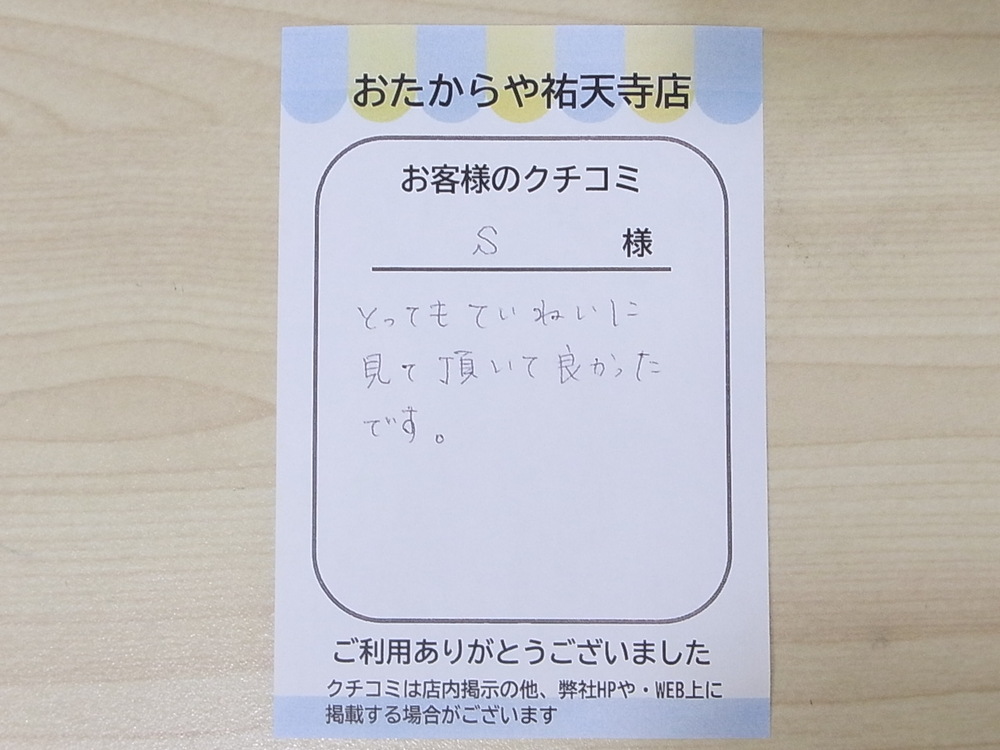 おたからや祐天寺店
お客様のクチコミ
S 様
とってもていねいに
見て頂いて良かった
です。
ご利用ありがとうございました
クチコミは店内掲示の他、弊社HPや・WEB上に
掲載する場合がございます